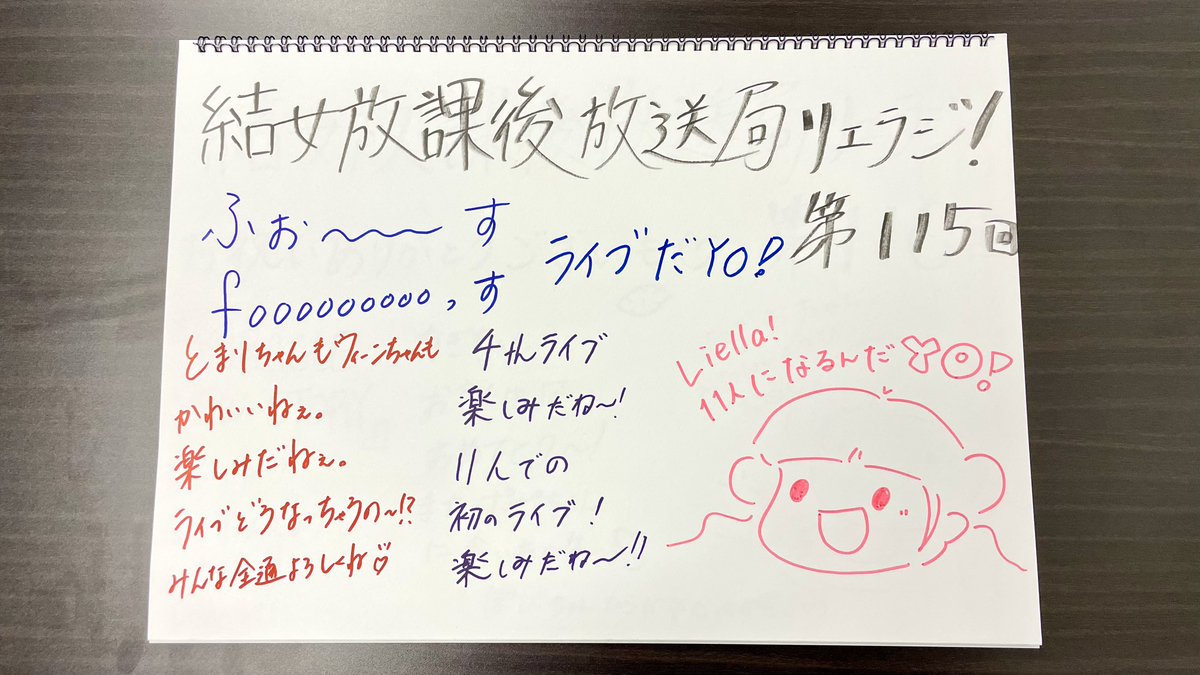 結女放課後放送局リエラジ!
第115回
ふぉ〜〜〜す
fooooooooo,す
ライブだYO!
とまりちゃんもウィーンちゃんも
かわいいねぇ。
楽しみだねぇ。
ライブどうなっちゃうの〜!?
みんな全通よろしくね♡
4thライブ
楽しみだね〜!
11人での
初のライブ!
楽しみだね〜!!
Liella!
11人になるんだYO!